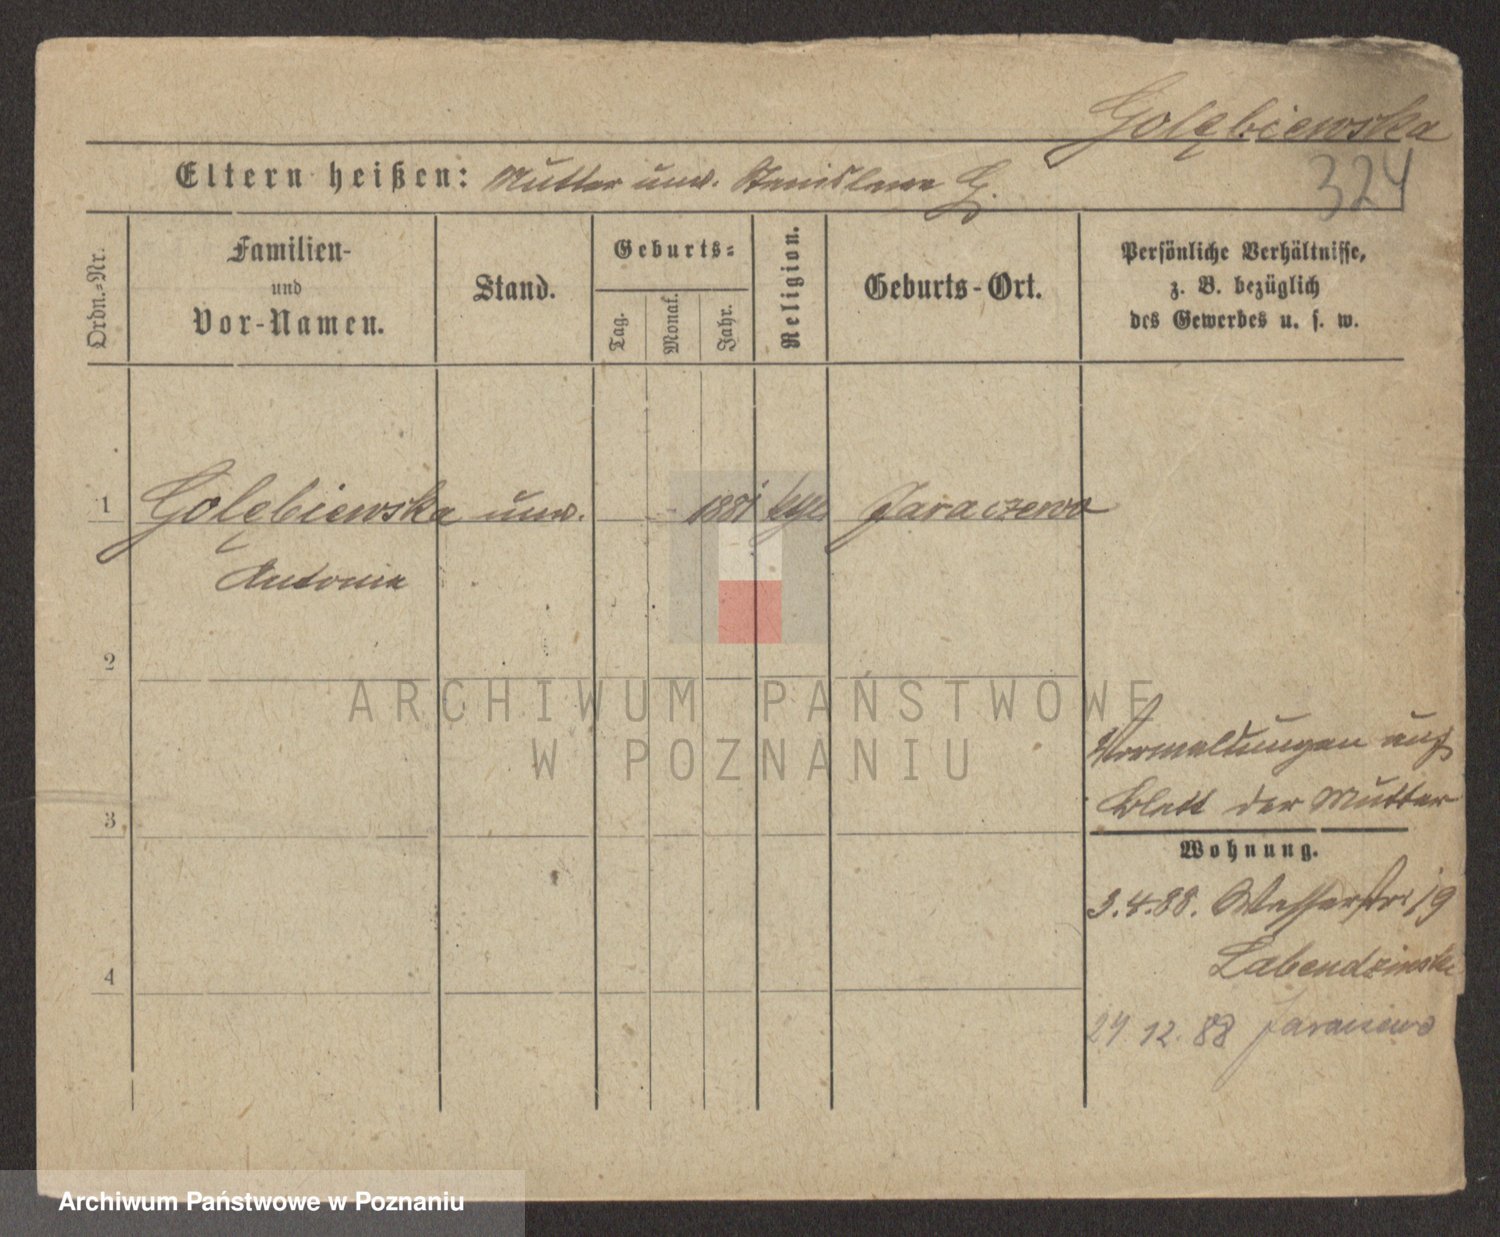 Golębiewska
324
Eltern heißen: Mutter unv. Stanislawa G.
Ordn.-Nr.
Familien-
und
Vor-Namen.
Stand.
Geburts=
Tag.
Monat.
Jahr.
Religion.
Geburts-Ort.
Persönliche Verhältnisse,
z. B. bezüglich
des Gewerbes u. s. w.
1 Golębiewska unv. 1881 Jaraczewo
Antonie
2
3
4
Vormeldungen auf
Blatt der Mutter
Wohnung.
3.4.88. Wasserstr. 19
Labendzinski
12. 88 Jaraczewo
ARCHIWUM PAŃSTWOWE
W POZNANIU
Archiwum Państwowe w Poznaniu